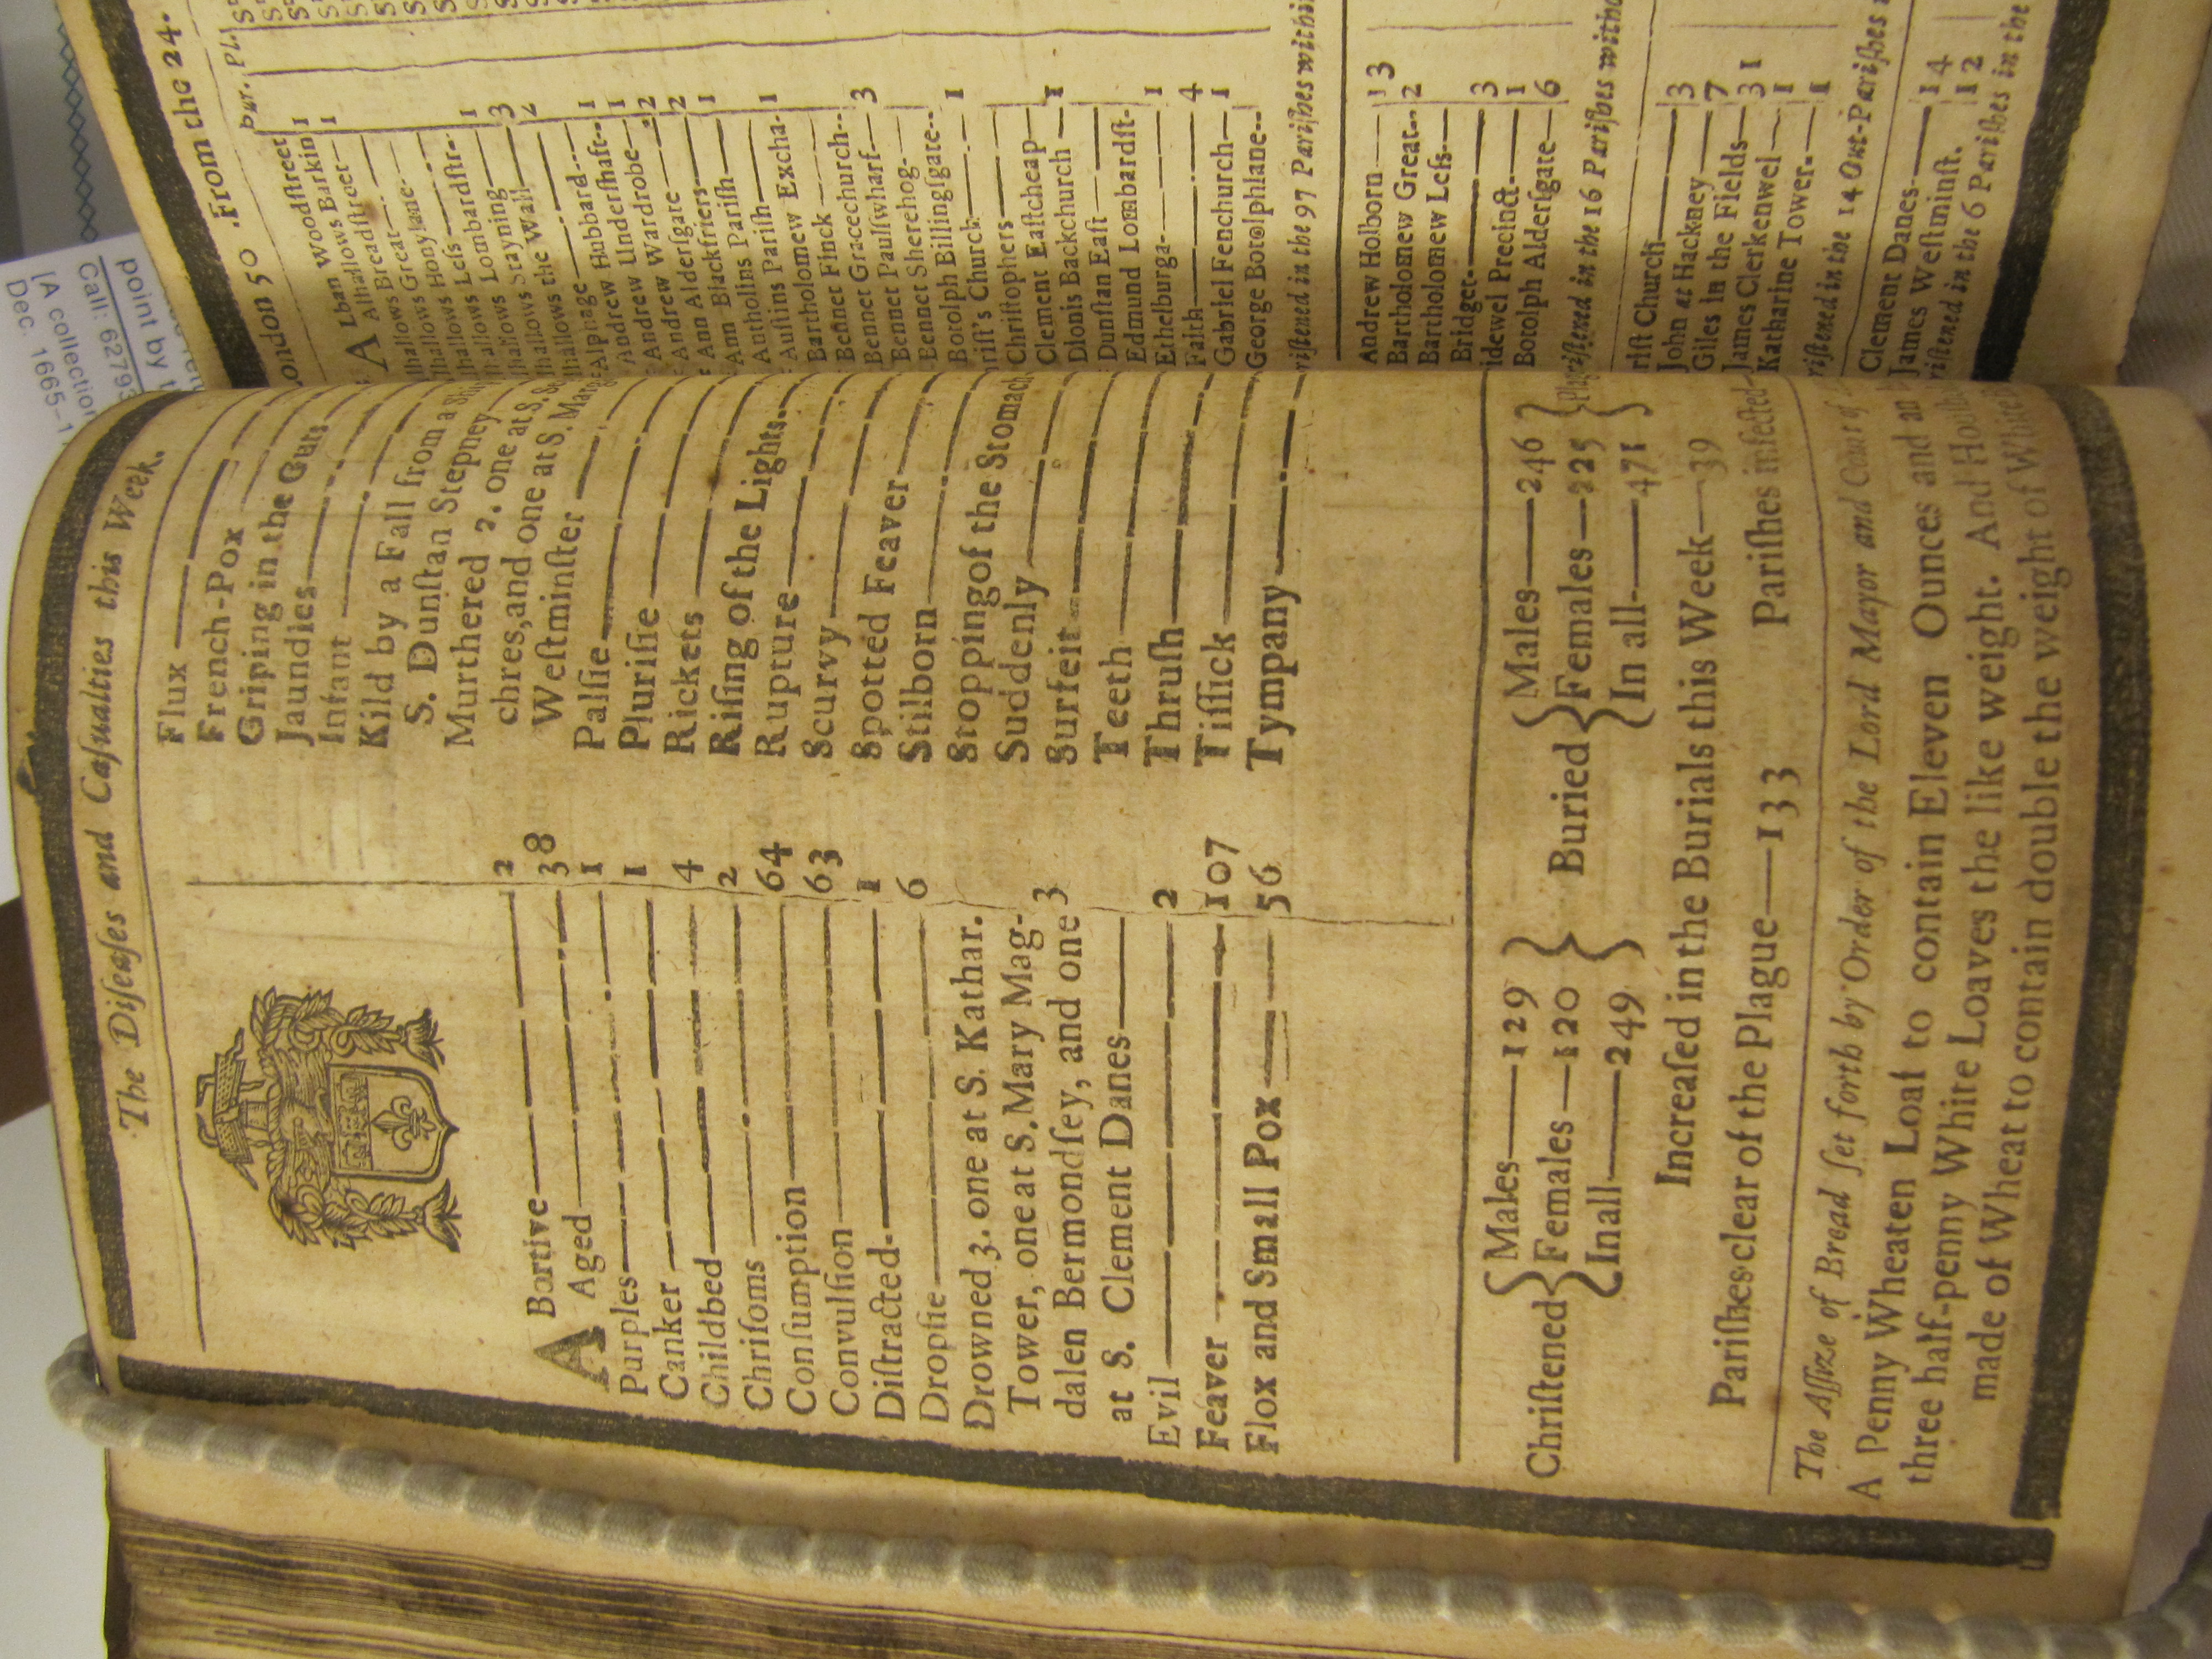 The Diſeaſes and Caſualties this Week.
ABortive 2
Aged 38
Purples 1
Canker 1
Childbed 4
Chriſoms 2
Conſumption 64
Convulſion 63
Diſtracted 1
Dropſie 6
Drowned 3. one at S. Kathar.
Tower, one at S. Mary Mag-
dalen Bermondſey, and one 3
at S. Clement Danes
Evil 2
Feaver 107
Flox and Small Pox 56
Flux
French-Pox
Griping in the Guts
Jaundies
Infant
Kild by a Fall from a
S. Dunſtan Stepney
Murthered 2. one at S.
chres, and one at S. Marg
Weſtminſter
Palſie
Pluriſie
Rickets
Riſing of the Lights
Rupture
Scurvy
Spotted Feaver
Stilborn
Stopping of the Stomach
Suddenly
Surfeit
Teeth
Thruſh
Tiſſick
Tympany
Chriſtened { Males 129 Females 120 In all 249 }
Buried { Males 246 Females 225 In all 471 }
Increaſed in the Burials this Week 39
Pariſhes clear of the Plague 133 Pariſhes infected
The Aſſize of Bread ſet forth by Order of the Lord Mayor and Court of
A Penny Wheaten Loaf to contain Eleven Ounces and an
three half-penny White Loaves the like weight. And Houſh
made of Wheat to contain double the weight of White
London 50 From the 24.
bur. Pl.
ALban Woodſtreet 1
Alhallows Barkin 1
Alhallows Breadſtreet
hallows Great
hallows Honylane
hallows Leſs
hallows Lombardſtr 1
hallows Stayning 3
hallows the Wall 2
Alphage
Andrew Hubbard 1
Andrew Underſhaft 1
Andrew Wardrobe 2
Ann Alderſgate 2
Ann Blackfriers 1
Antholins Pariſh
Auſtins Pariſh 1
Bartholomew Excha
Bennet Finck
Bennet Gracechurch
Bennet Paulſwharf 3
Bennet Sherehog
Botolph Billingſgate
riſt's Church 1
Chriſtophers
Clement Eaſtcheap 1
Dionis Backchurch
Dunſtan Eaſt
Edmund Lombardſt
Ethelburga 1
Faith 4
Gabriel Fenchurch 1
George Botolphlane
riſtened in the 97 Pariſhes within
Andrew Holborn 13
Bartholomew Great 2
Bartholomew Leſs
Bridget 3
idewel Precinct 1
Botolph Alderſgate 6
riſtened in the 16 Pariſhes witho
riſt Church
John at Hackney 3
Giles in the Fields 7
James Clerkenwel 31
Katharine Tower 1
1
riſtened in the 14 Out-Pariſhes
Clement Danes 14
James Weſtminſt. 12
riſtened in the 6 Pariſhes in the
point by
Call: 6279
[A collection
Dec. 1665-1